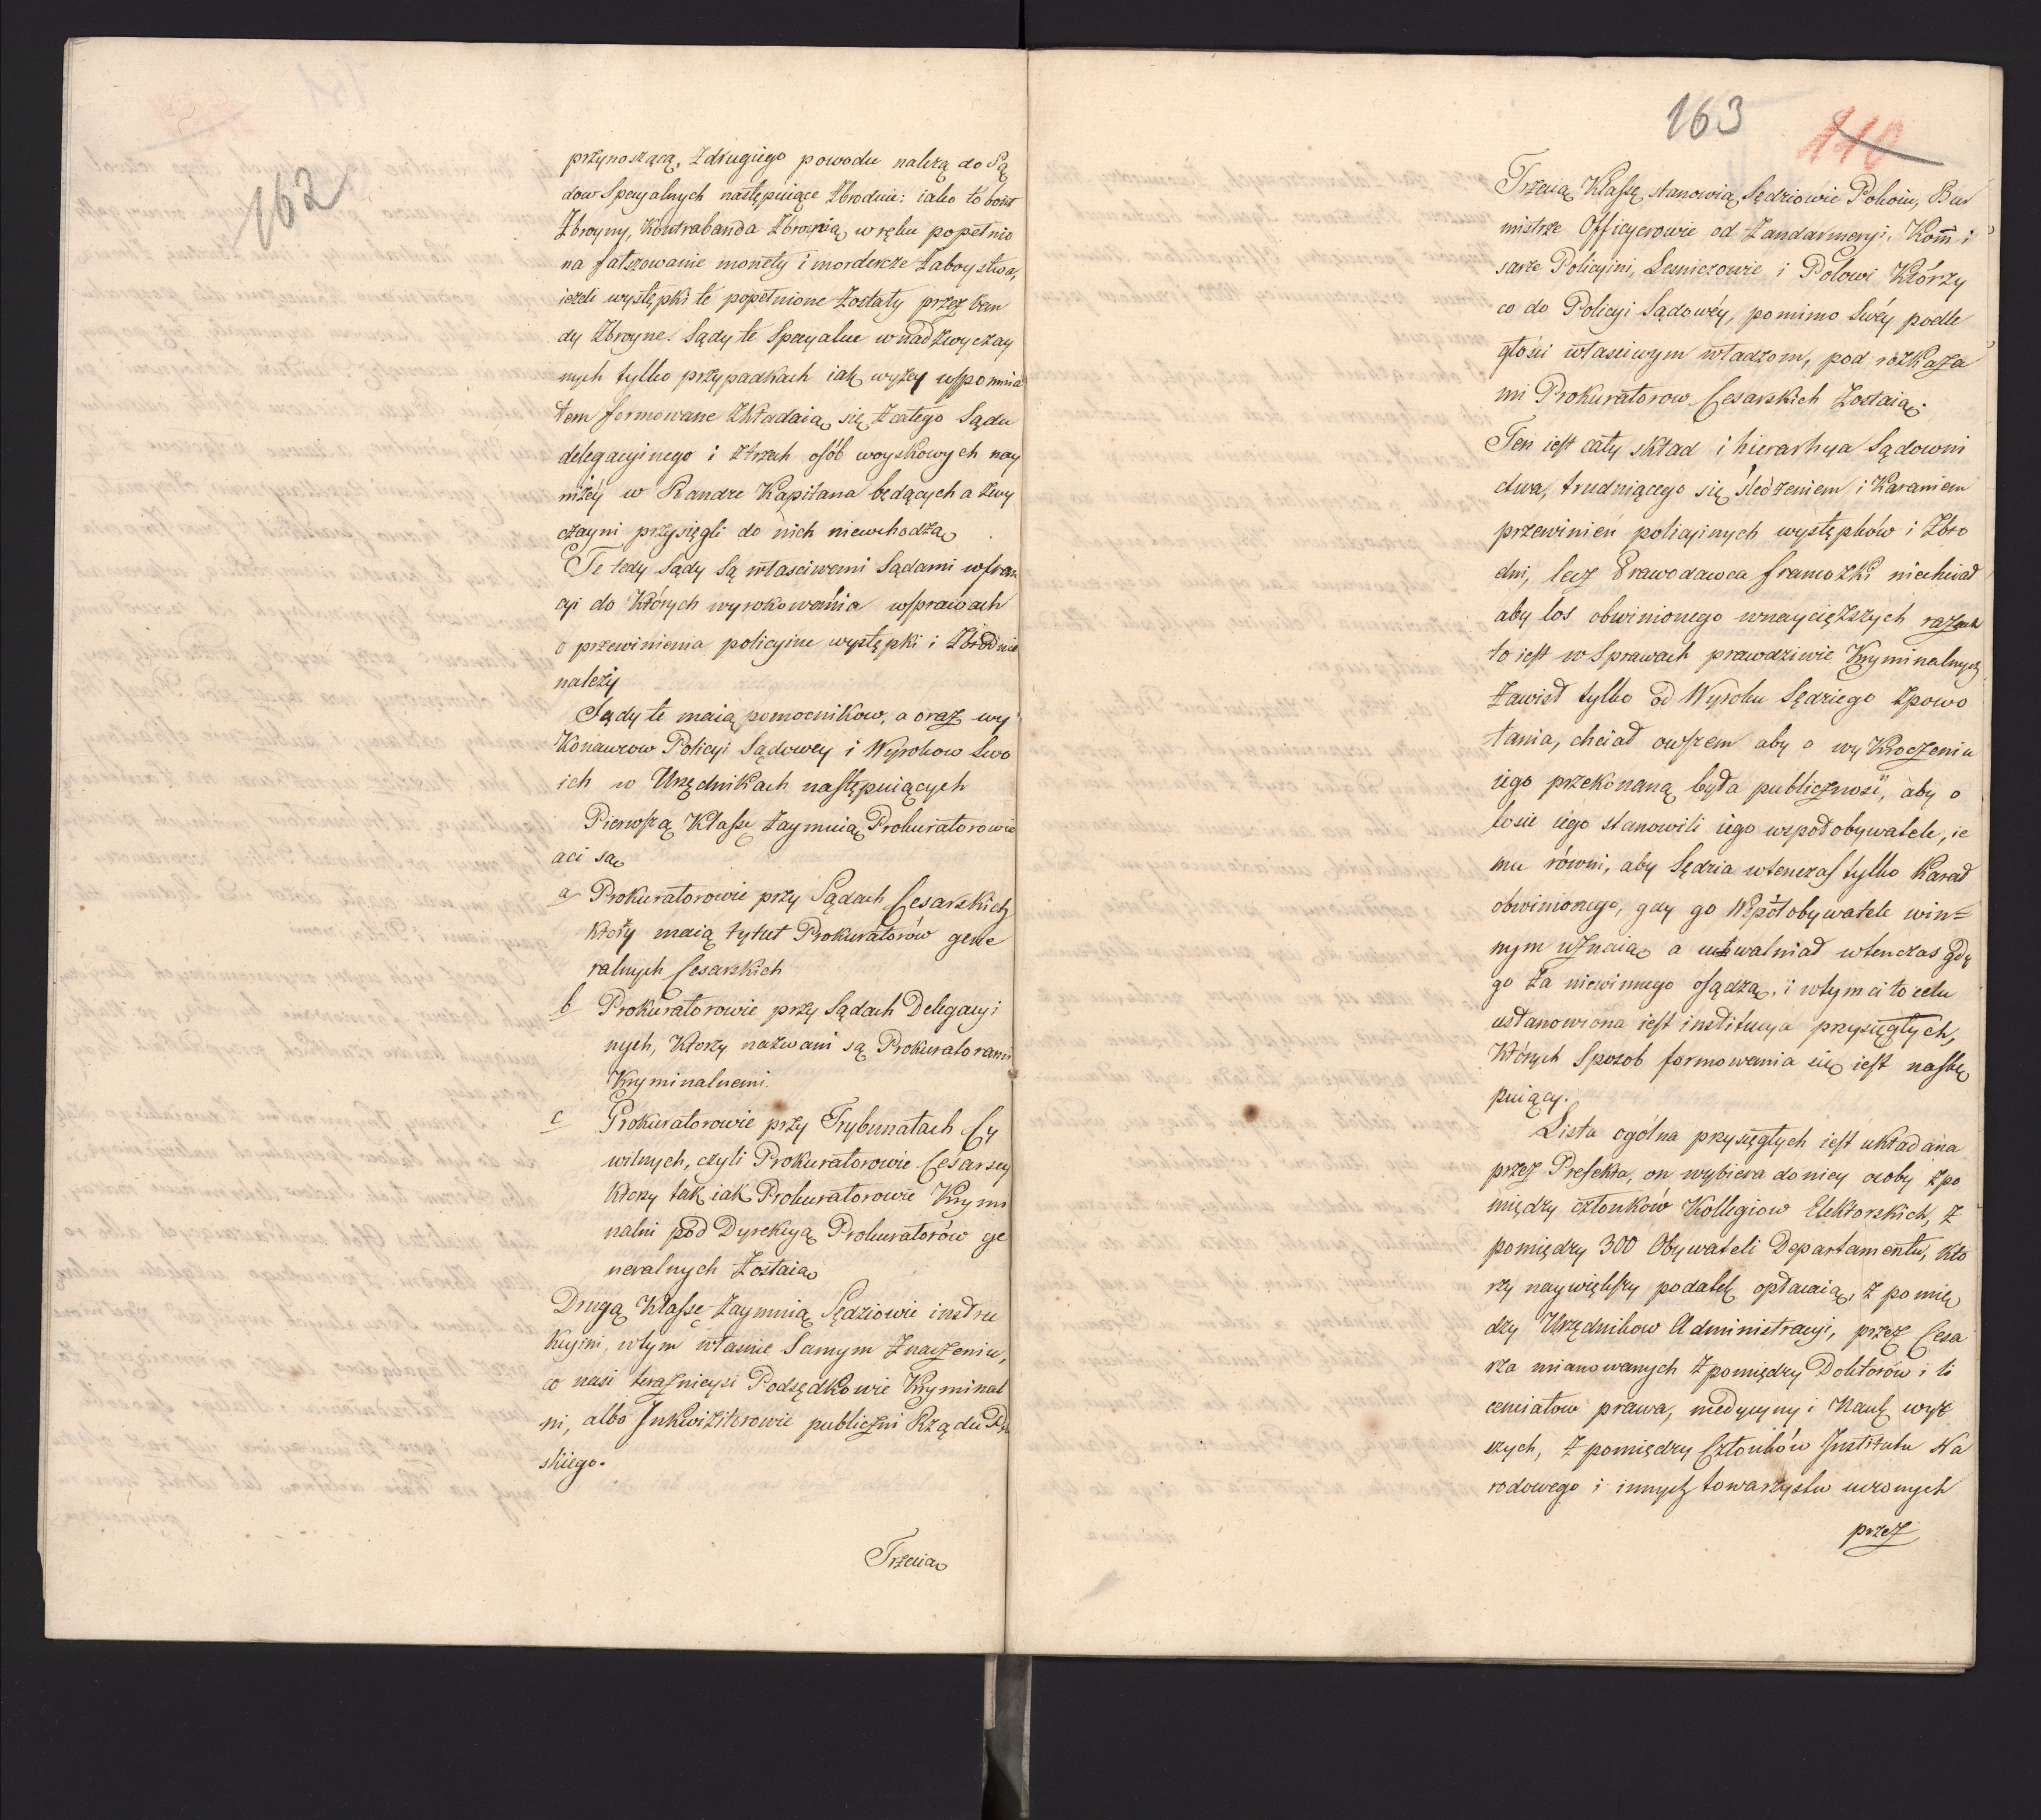 162
przynoszącą, z drugiego powodu należą do Są
dow Specyalnych następuiące Zbrodnie: iako to bont
Zbroyny, Kontrabanda Zbronią w ręku popełnio
na fałszowanie monety i mordercze Zaboystwa,
ieżeli występki te popełnione Zostały przez ban
dy Zbroyne. Sądy te Specyalne w nadzwyczay
nych tylko przypadkach iak wyżey wspomnia
łem formowane Zkładaią się z całego Sądu
delegacyinego i z trzech osób woyskowych nay
niżéy w Randze Kapitana będących a zwy
czayni przysięgli do nich niewchodzą
Te tedy Sądy są właściwemi Sądami w fran
cyi do których wyrokowania w sprawach
o przewinienia policyine występki i Zbrodnie
należy
Sądy te maią pomocnikow, a oraz wy
Konawcow Policyi Sądowey i Wyrokow Swo
ich w Urzędnikach następuiących
Pierwszą Klassę Zaymuią Prokuratorowie
a ci są
a Prokuratorowie przy Sądach Cesarskich
którzy maią tytuł Prokuratorów gene
ralnych Cesarskich
b Prokuratorowie przy Sądach Delegacyi
nych, którzy nazwani są Prokuratorami
Kryminalnemi.
c Prokuratorowie przy Trybunałach Cy
wilnych, czyli Prokuratorowie Cesarscy
którzy tak iak Prokuratorowie Krymi
nalni pod Dyrekcyą Prokuratorów ge
neralnych Zostaią
Drugą Klassę Zaymuią Sędziowie instru
kcyini, w tym własnie Samym Znaczeniu,
co nasi teraznieysi Podsędkowie Kryminal
ni, albo Inkwizitorowie publiczni Rządu Pru
skiego.
Trzecią
163
110
Trzecią Klassę stanowią Sędziowie Pokoiu, Bur
mistrze Officyerowie od Zandarmeryi, Kommi
sarze Policyini, Lesniczowie i Polowi Którzy
co do Policyi Sądowéy, pomimo Swéy podle
głości właściwym władzom, pod rozkaza
mi Prokuratorow Cesarskich Zostaią.
Ten iest cały skład i hierarhya Sądowni
ctwa, trudniącego się śledzeniem i Karaniem
przewinień policyinych występków i Zbro
dni, lecz Prawodawca francuzki niechciał
aby los obwinionego w naycięższych razach
to iest w Sprawach prawdziwie Kryminalnych
Zawisł tylko od Wyroku Sędziego z powo
łania, chciał owszem aby o wykroczeniu
iego przekonaną była publiczność, aby o
losie iego stanowili iego wspołobywatele, ie
mu równi, aby Sędzia wtenczas tylko Karał
obwinionego, gdy go Wspołobywatele win=
nym uznaią a uwalniał wtenczas gdy
go Za niewinnego osądzą, i w tym ci to celu
ustanowiona iest instytucya przysięgłych,
Których Sposob formowania się iest nastę
puiący.
Lista ogólna przysięgłych iest układana
przez Prefekta, on wybiera do niey osoby z po
między członków Kollegiow Elektorskich, z
pomiędzy 300 Obywateli Departamentu, Któ
rzy naywiększy podatek opłacaią, z pomię
dzy Urzędnikow Administracyi, przez Cesa
rza mianowanych z pomiędzy Doktorów i li
cenciatow prawa, medycyny i Nauk wyż
szych, z pomiędzy Członków Jnstitutu Na
rodowego i innych towarzystw uczonych
przez